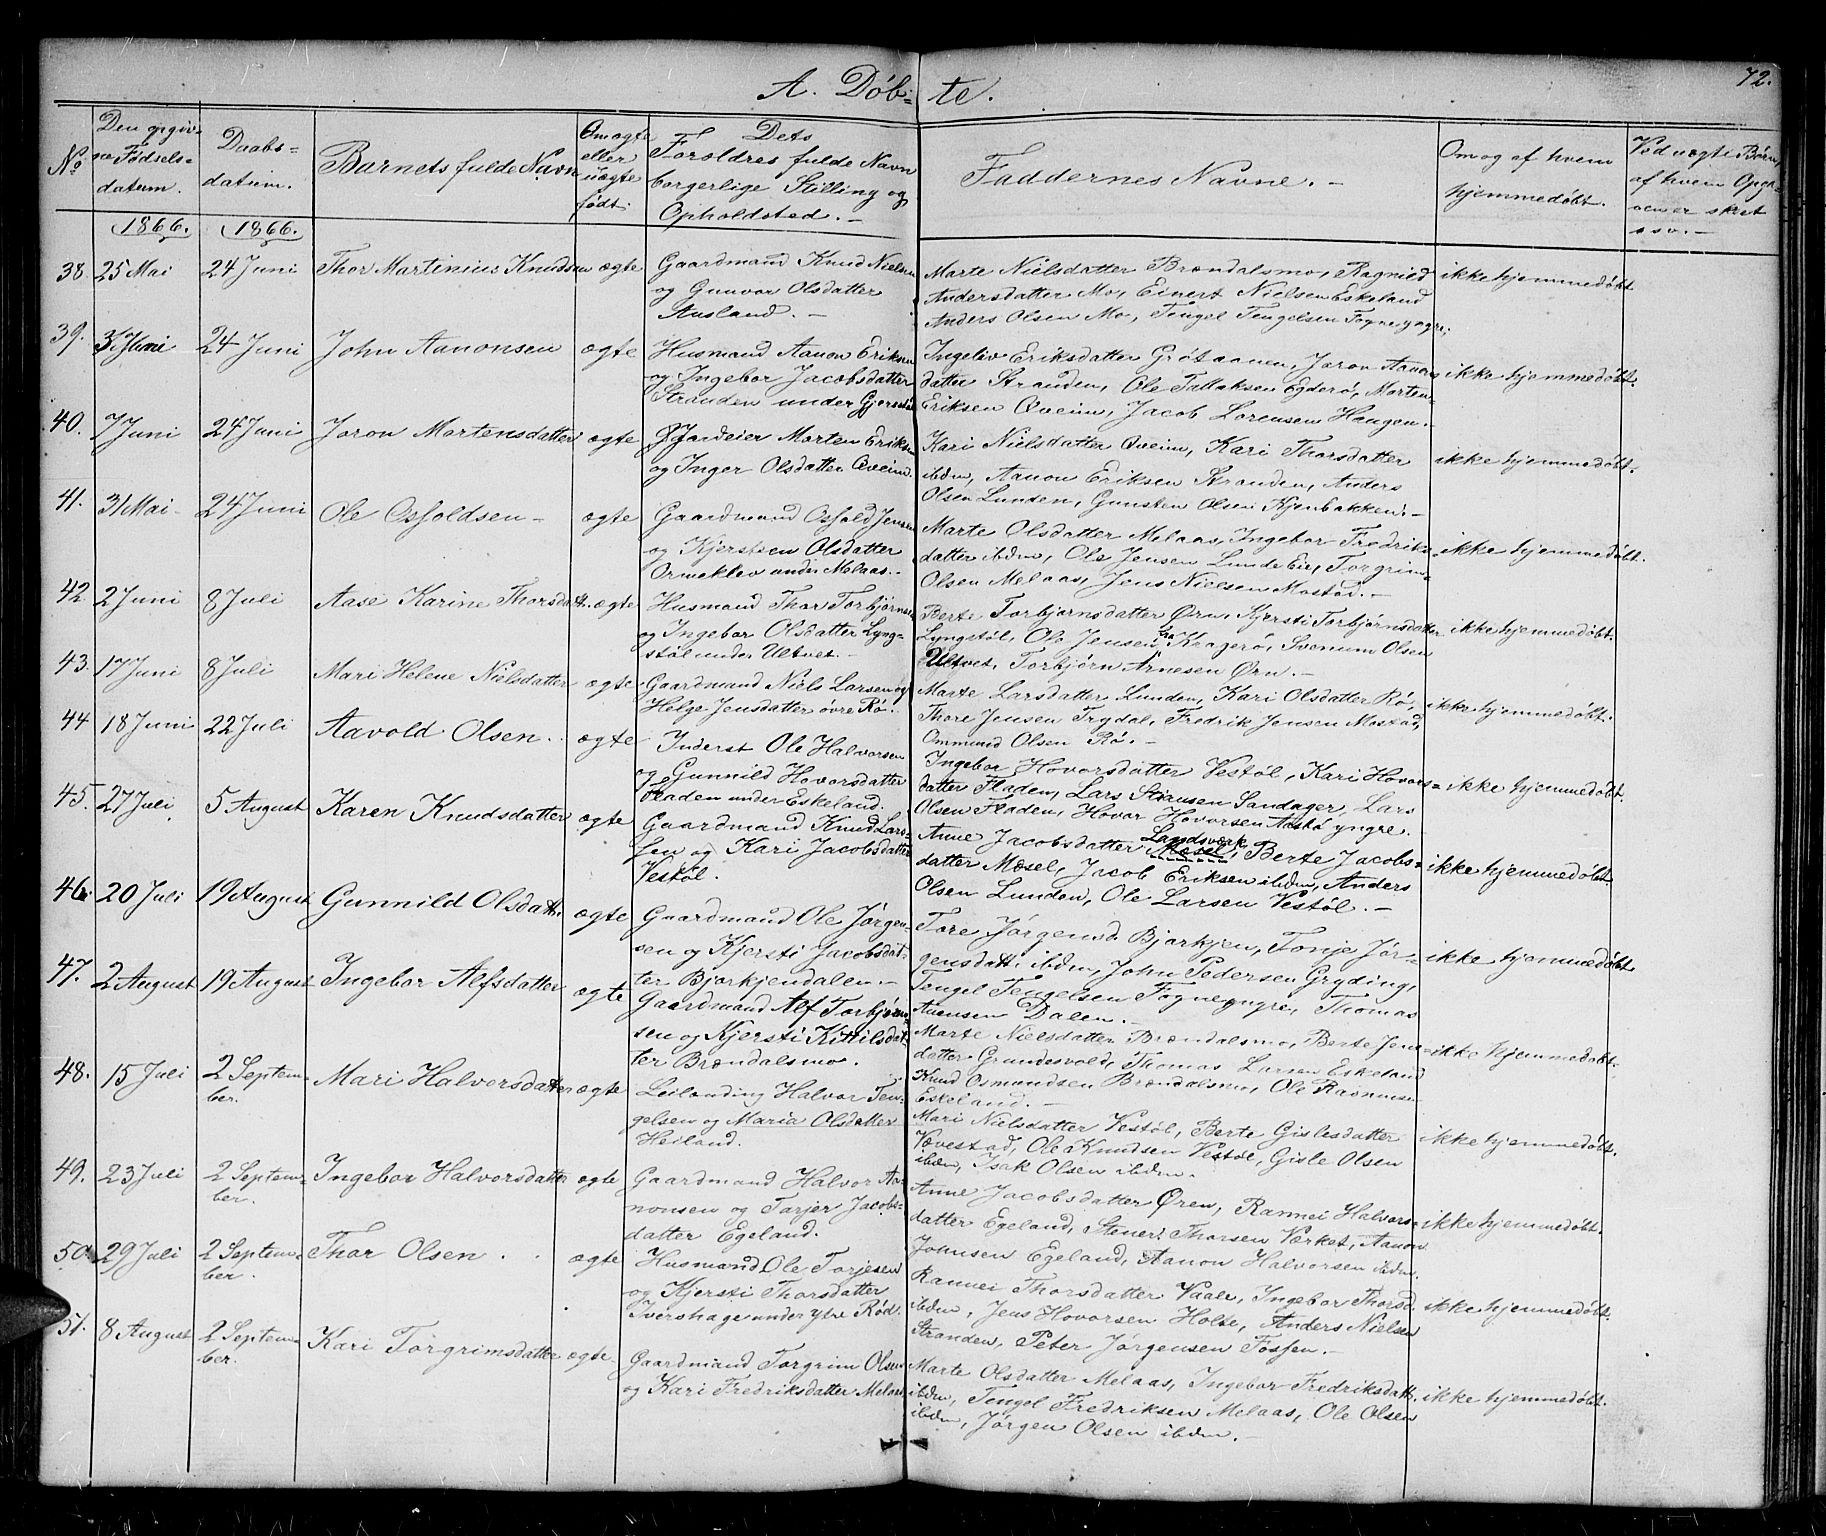 72.
A. Döb= te.
No
Den opgiv=
ne Fødsels=
datum.
Daabs=
datum.
Barnets fulde Navn
Om ægte
eller
uægte
født.
Dets
Forældres fulde Navn
borgerlige Stilling og
Opholdsted. –
Faddernes Navne. –
Om og af hvem
hjemmedøbt.
Ved uægte Børn,
af hvem Opga=
ven er skeet
o s v. –
1866. 1866.
38. 25 Mai 24 Juni Thor Martinius Knudsen ægte
Gaardmand Knud Nielsen
og Gunvor Olsdatter
Ausland. –
Marte Nielsdatter Brændalsmo, Ragnild
Andersdatter Mo, Einert Nielsen Eskeland
Anders Olsen Mo, Tengel Tengelsen Fogne yngre.
ikke hjemmedøbt
39. 3 Juni 24 Juni John Aanonsen ægte
Husmand Aanon Eriksen
og Ingebor Jacobsdatter
Stranden under Gjerestad
Ingeliv Eriksdatter Grötaanen, Joron Aanons
datter Stranden, Ole Tallaksen Egderö, Morten
Eriksen Qveim, Jacob Lorensen Haugen. –
ikke hjemmedøbt.
40. 7 Juni 24 Juni Joron Mortensdatter ægte
Gjordeier Morten Eriksen
og Inger Olsdatter Qveim.
Kari Nielsdatter Qveim, Kari Thorsdatter
ibdm, Aanon Eriksen Stranden, Anders
Olsen Lunden, Gunsten Olsen Kjenbakken. –
ikke hjemmedøbt.
41. 31 Mai 24 Juni Ole Osfoldsen – ægte
Gaardmand Osfold Jensen
og Kjersteen Olsdatter
Ormeklev under Melaas. –
Marte Olsdatter Melaas, Ingebor Fredriks=
datter ibdm, Ole Jensen Lunde Eie, Torgrim
Olsen Melaas, Jens Nielsen Mostad. –
ikke hjemmedøbt.
42. 2 Juni 8 Juli Aase Karine Thorsdatt. ægte
Husmand Thor Torbjørnsen
og Ingebor Olsdatter Lyng=
støl under Ultvet. –
Berte Torbjørnsdatter Ørn, Kjersti Torbjørnsdatter
Lyngstöl, Ole Jensen fra Kragerö, Svenum Olsen
Ultvet, Torbjörn Arnesen Ørn. –
ikke hjemmedøbt.
43. 17 Juni 8 Juli Mari Helene Nielsdatter ægte
Gaardmand Niels Larsen og
Helge Jensdatter øvre Rø. –
Marte Larsdatter Lunden, Kari Olsdatter Rö,
Thore Jensen Trydal, Fredrik Jensen Mostad,
Ommund Olsen Rö. –
ikke hjemmedøbt.
44 18 Juni 22 Juli Aavold Olsen. ægte
Inderst Ole Halvorsen
og Gunnild Hovorsdatter
Fladen under Eskeland.
Ingebor Hovorsdatter Vestöl, Kari Hovors=
datter Fladen, Lars Stiansen Sandager, Lars
Olsen Fladen, Hovor Hovorsen Aastö yngre. –
ikke hjemmedøbt.
45. 27 Juli 5 August Karen Knudsdatter ægte
Gaardmand Knud Lar=
sen og Kari Jacobsdatter
Vestöl.
Anne Jacobsdatter Mæsel, Landsværk Berte Jacobs=
datter Mæsel, Jacob Eriksen ibdm, Anders
Olsen Lunden, Ole Larsen Vestöl. –
ikke hjemmedøbt
46. 20 Juli 19 August Gunnild Olsdatter ægte
Gaardmand Ole Jörgen=
sen og Kjersti Jacobsdat=
ter Bjorkjendalen. –
Tore Jörgensd. Bjorkjen, Tonje Jör=
gensdatt. ibdm, John Pedersen Gryding,
Tengel Tengelsen Fogne yngre, Thomas
Auensen Dalen. –
ikke hjemmedøbt
47. 2 August 19 August Ingebor Alfsdatter ægte
Gaardmand Alf Torbjörn=
sen og Kjersti Kittilsdat=
ter Brændalsmo.
Marte Nielsdatter Brændalsmo, Berte Jens=
datter Grundesvold, Thomas Larsen Eskeland
Knud Osmundsen Brændalsmo, Ole Rasmusen
Eskeland. –
ikke hjemmedøbt.
48. 15 Juli 2 Septem=
ber. Mari Halvorsdatter ægte
Leilænding Halvor Ten=
gelsen og Maria Olsdatter
Heiland.
Mari Nielsdatter Vestöl, Berte Gislesdatter
Vævestad, Ole Knudsen Vestöl, Gisle Olsen
ibdm, Isak Olsen ibdm. –
ikke hjemmedøbt.
49. 23 Juli 2 Septem=
ber. Ingebor Halvorsdatter ægte
Gaardmand Halvor Aa=
nonsen og Torjer Jacobs=
datter Egeland.
Anne Jacobsdatter Øren, Rannei Halvors=
datter Egeland, Stener Thorsen Værket, Aanon
Johnsen Egeland, Aanon Halvorsen ibdm.
ikke hjemmedøbt.
50. 29 Juli 2 Septem=
ber. Thor Olsen. ægte
Husmand Ole Torjesen
og Kjersti Thorsdatter
Ivershage under Ytre Röd.
Rannei Thorsdatter Vaale, Ingebor Thorsd.
ibdm, Jens Hovorsen Holte, Anders Nielsen
Stranden, Peter Jörgensen Fossen. –
ikke hjemmedøbt.
51. 8 August 2 Septem=
ber. Kari Torgrimsdatter ægte
Gaardmand Torgrim Olsen
og Kari Fredriksdatter Melaas
Marte Olsdatter Melaas, Ingebor Fredriksdatt.
ibdm, Tengel Fredriksen Melaas, Ole Olsen
ibdm, Jörgen Olsen ibdm. –
ikke hjemmedøbt.